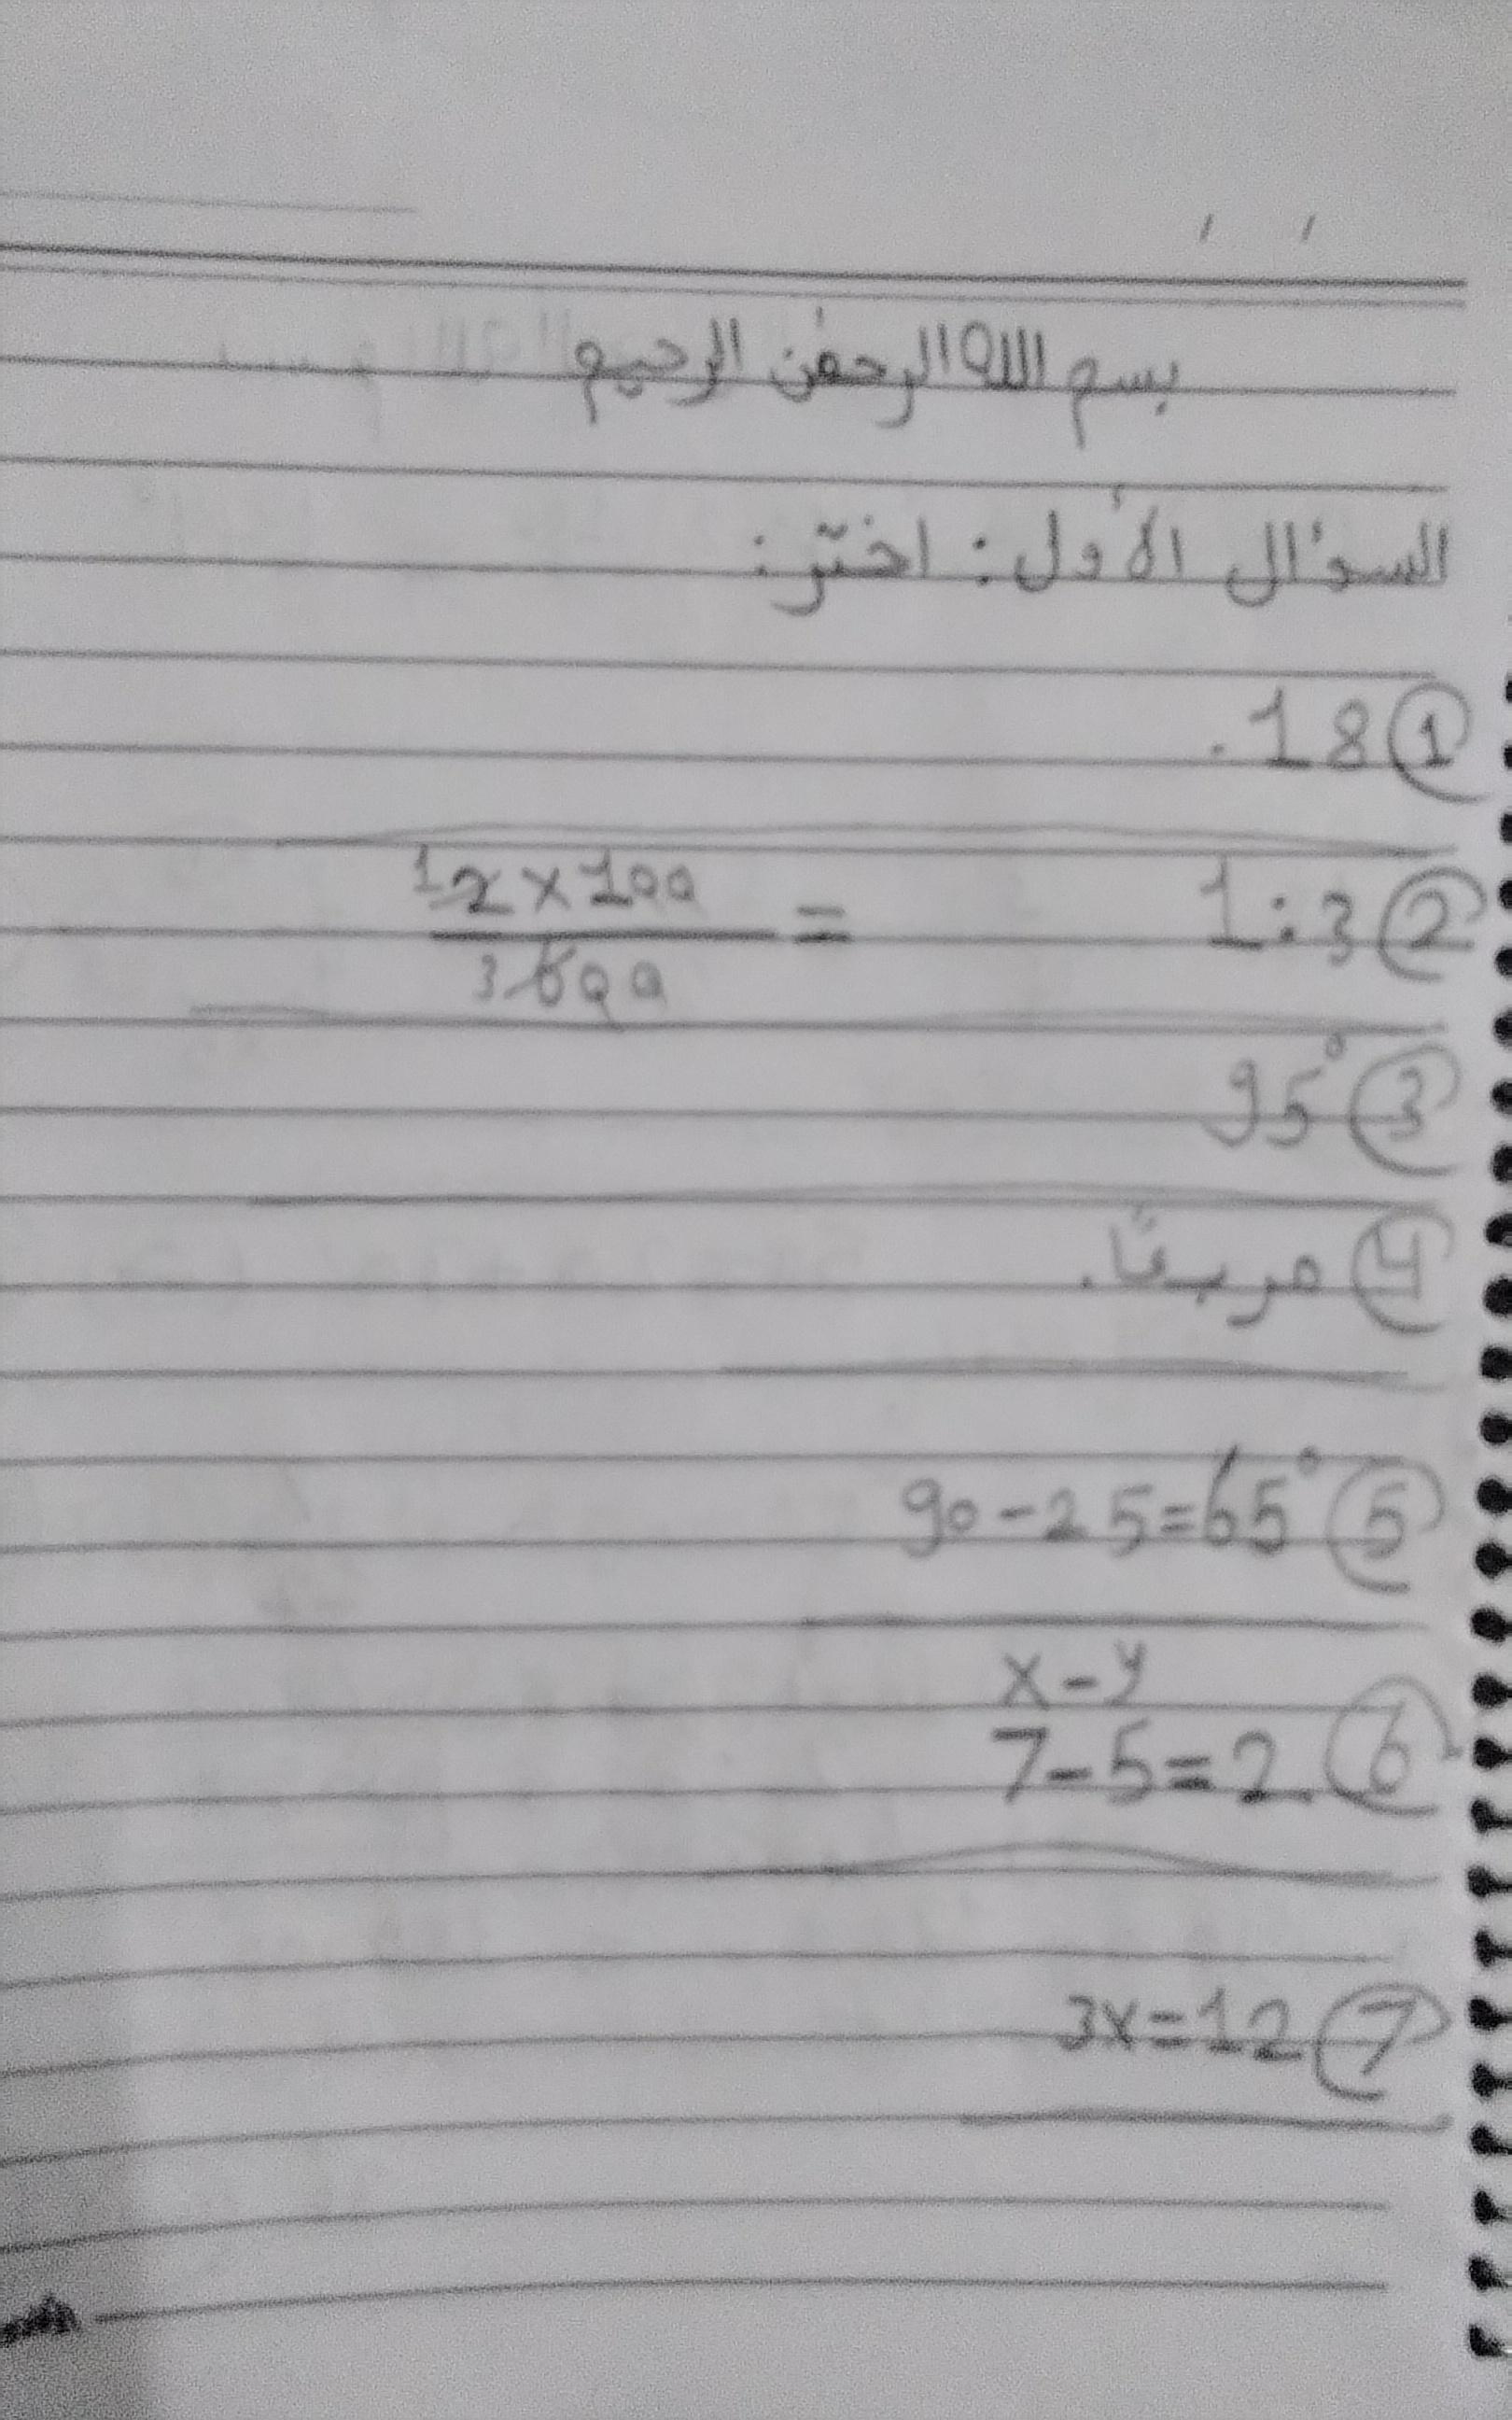 بسم الله الرحمٰن الرحيم
السؤال الأول: اختر:
① 18.
② 1:3 = 12x100 / 3600
③ 95°
④ مربعًا.
⑤ 90-25=65°
x-y
⑥ 7-5=2
⑦ 3x=12